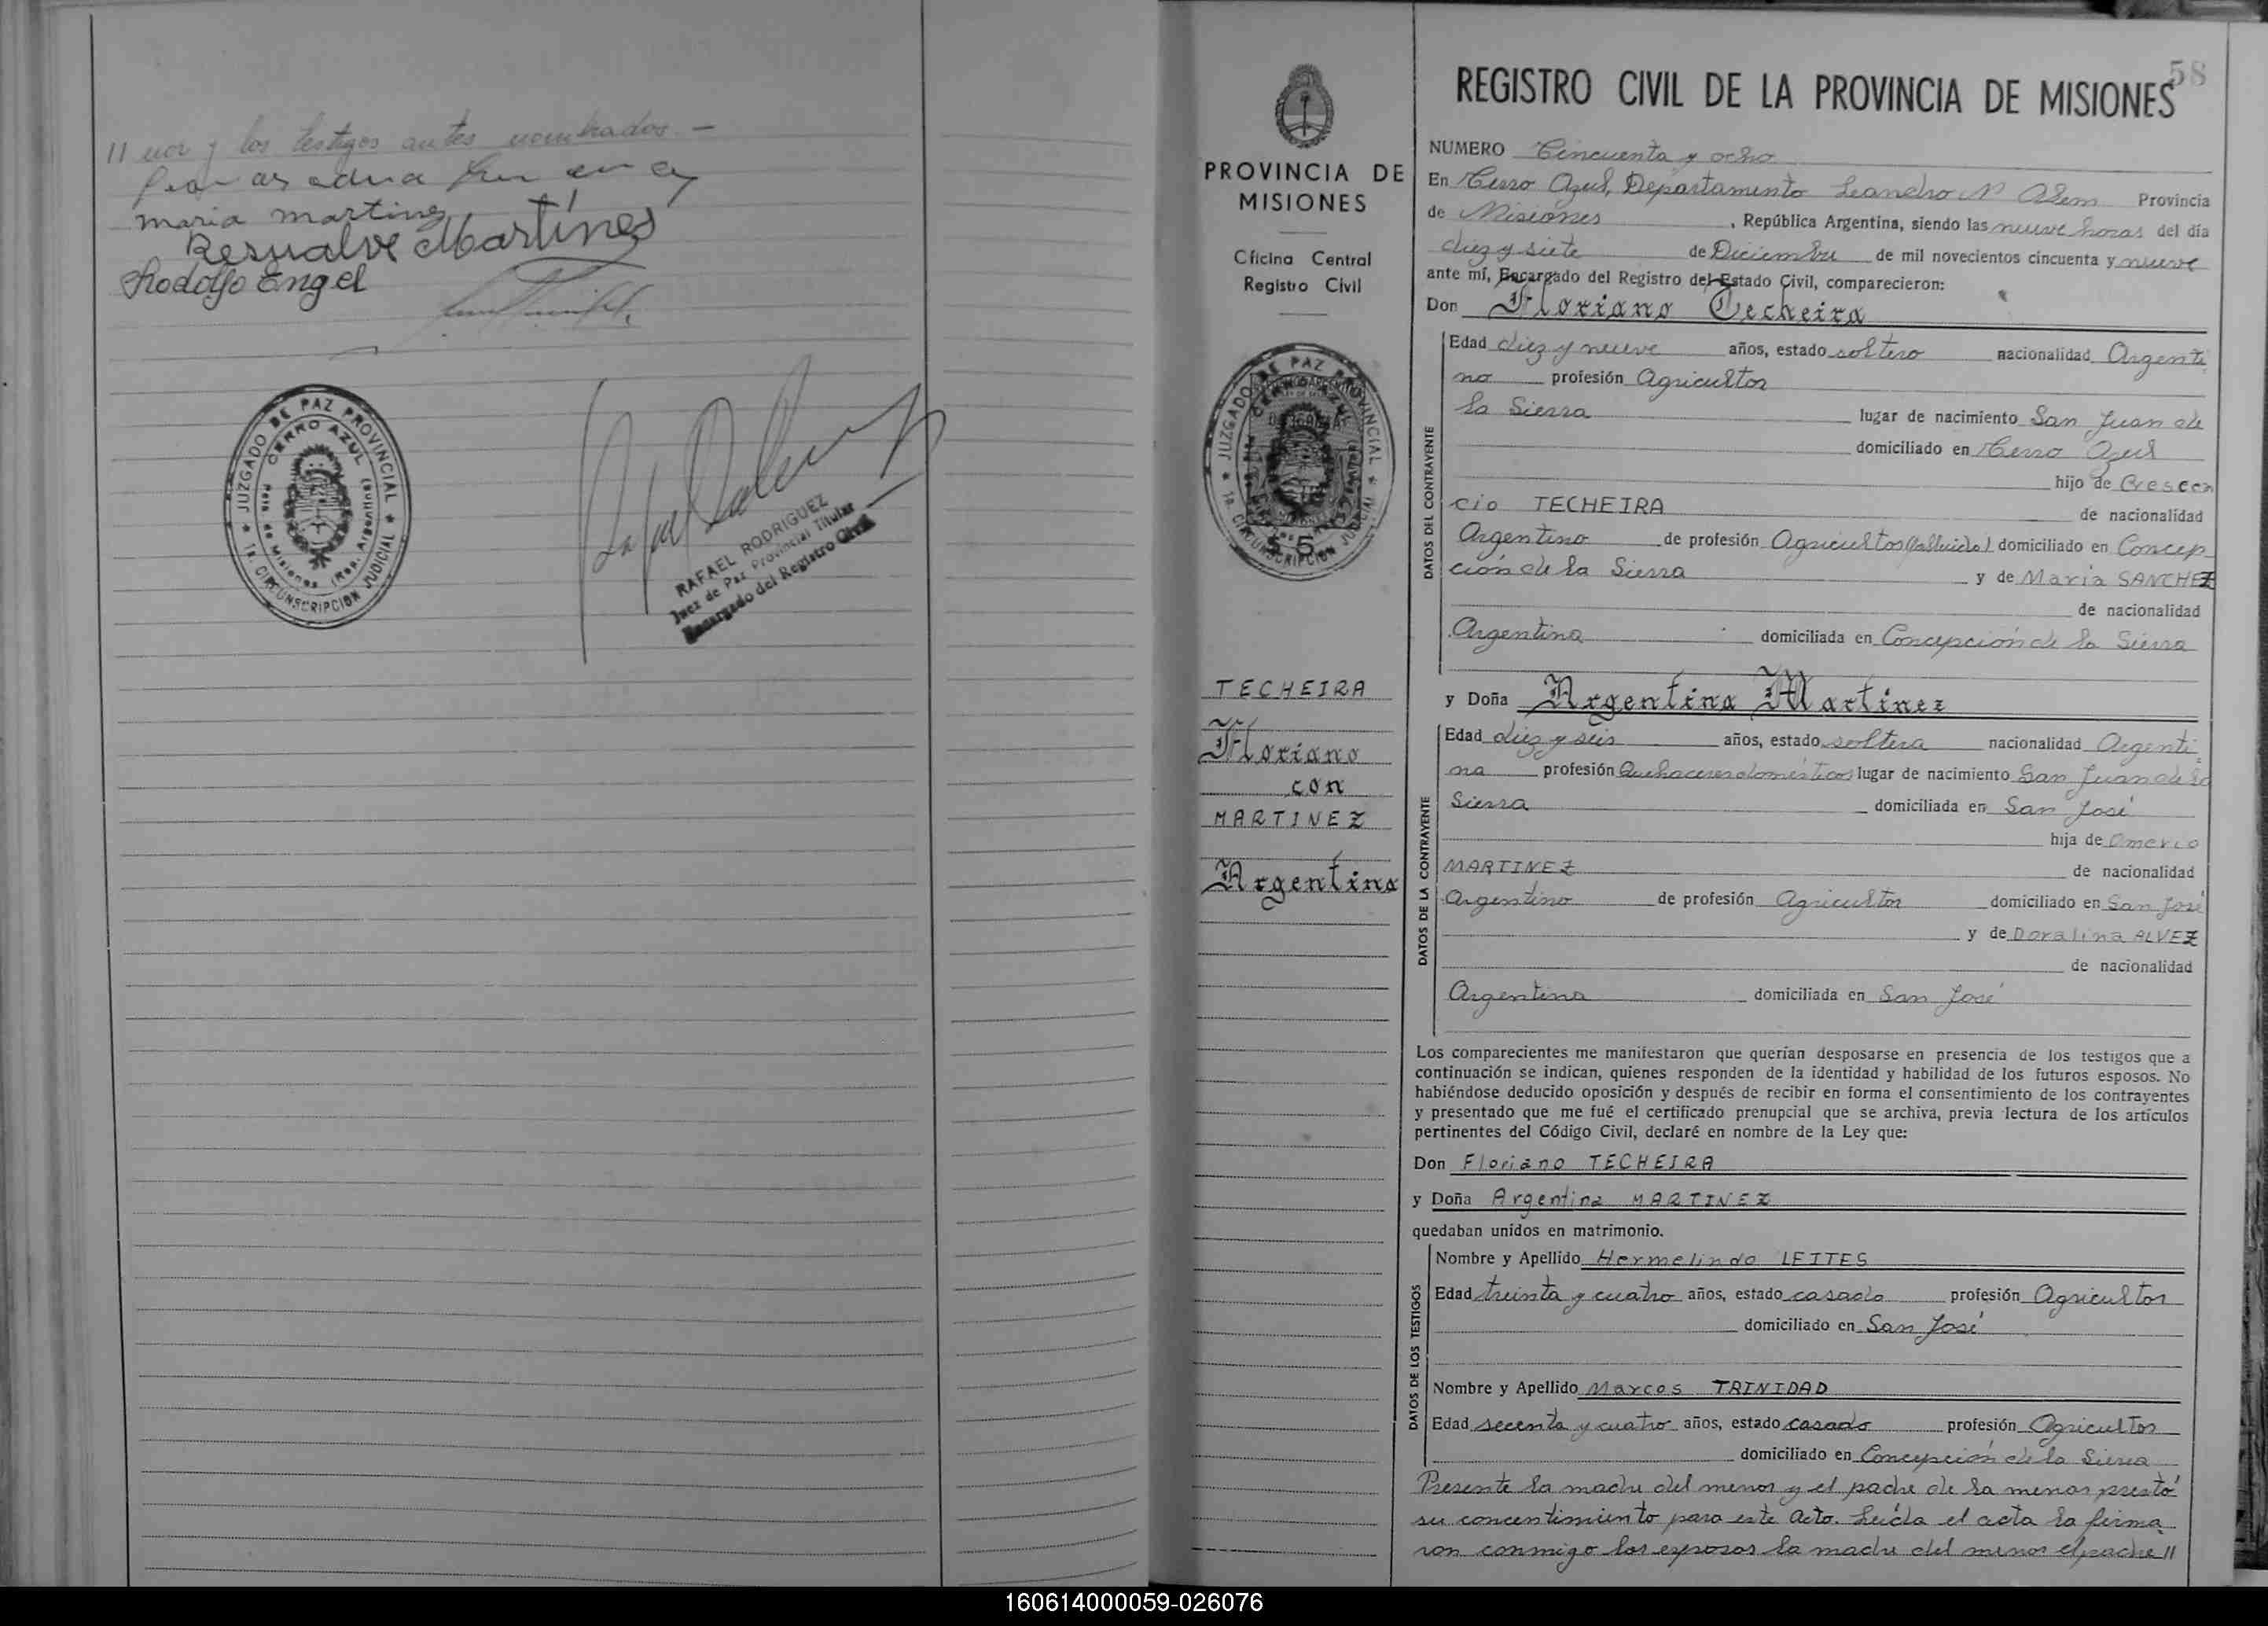 11 nor y los testigos antes nombrados. —
maria martinez
Resualve Martínes
Rodolfo Engel
JUZGADO DE PAZ PROVINCIAL
CERRO AZUL
Pcia. de Misiones (Rep. Argentina)
1a. CIRCUNSCRIPCION JUDICIAL
RAFAEL RODRIGUEZ
Juez de Paz Provincial Titular
Encargado del Registro Civil
PROVINCIA DE
MISIONES
Oficina Central
Registro Civil
JUZGADO DE PAZ PROVINCIAL
1a. CIRCUNSCRIPCION JUDICIAL
TECHEIRA
Floriano
con
MARTINEZ
Argentina
58
REGISTRO CIVIL DE LA PROVINCIA DE MISIONES
NUMERO Cincuenta y ocho
En Cerro Azul, Departamento Leandro N Alem Provincia
de Misiones, República Argentina, siendo las nueve horas del día
diez y siete de Diciembre de mil novecientos cincuenta y nueve
ante mí, Encargado del Registro del Estado Civil, comparecieron:
Don Floriano Techeira
DATOS DEL CONTRAYENTE
Edad diez y nueve años, estado soltero nacionalidad Argenti
no profesión Agricultor
la Sierra lugar de nacimiento San Juan de
domiciliado en Cerro Azul
hijo de Crescen
cio TECHEIRA de nacionalidad
Argentino de profesión Agricultor (fallecido) domiciliado en Concep
ción de la Sierra y de Maria SANCHEZ
de nacionalidad
Argentina domiciliada en Concepción de la Sierra
y Doña Argentina Martinez
DATOS DE LA CONTRAYENTE
Edad diez y seis años, estado soltera nacionalidad Argenti
na profesión Quehaceres domésticos lugar de nacimiento San Juan de la
Sierra domiciliada en San José
hija de Omerio
MARTINEZ de nacionalidad
Argentino de profesión Agricultor domiciliado en San José
y de Doralina ALVEZ
de nacionalidad
Argentina domiciliada en San José
Los comparecientes me manifestaron que querían desposarse en presencia de los testigos que a
continuación se indican, quienes responden de la identidad y habilidad de los futuros esposos. No
habiéndose deducido oposición y después de recibir en forma el consentimiento de los contrayentes
y presentado que me fué el certificado prenupcial que se archiva, previa lectura de los artículos
pertinentes del Código Civil, declaré en nombre de la Ley que:
Don Floriano TECHEIRA
y Doña Argentina MARTINEZ
quedaban unidos en matrimonio.
DATOS DE LOS TESTIGOS
Nombre y Apellido Hermelindo LEITES
Edad treinta y cuatro años, estado casado profesión Agricultor
domiciliado en San José
Nombre y Apellido Marcos TRINIDAD
Edad secenta y cuatro años, estado casado profesión Agricultor
domiciliado en Concepción de la Sierra
Presente la madre del menor y el padre de la menor prestó
su concentimiento para este acto. Leída el acta la firma
ron conmigo los esposos la madre del menor el padre 11
160614000059-026076